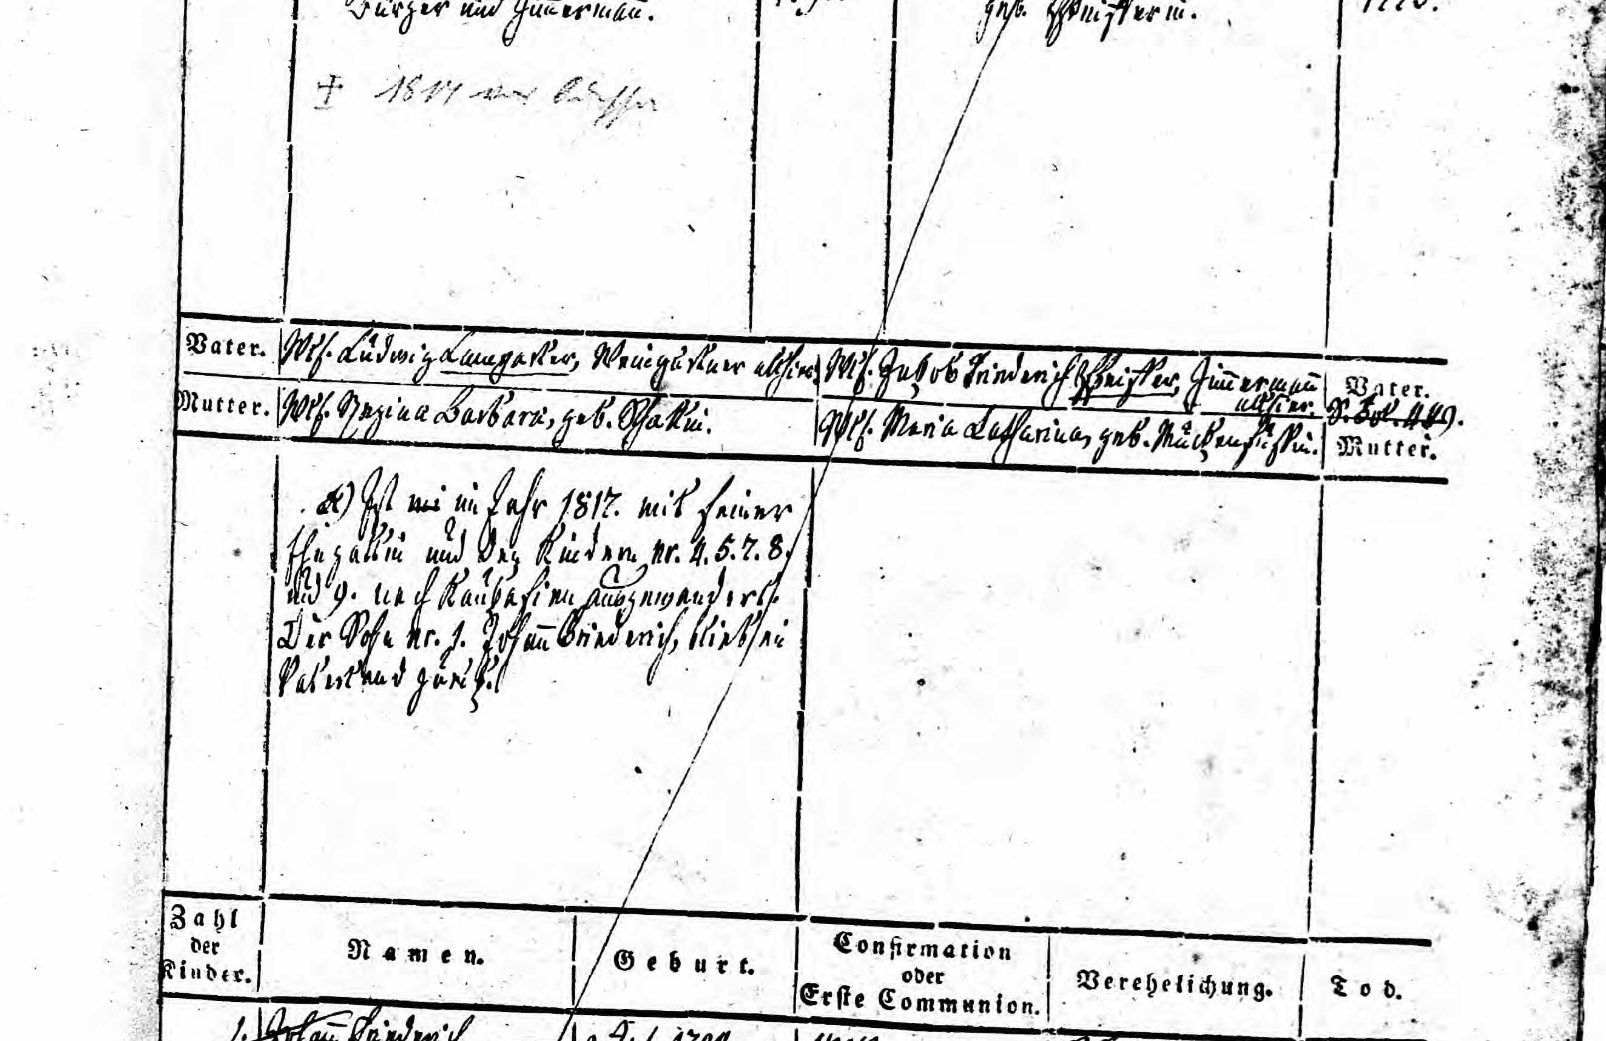 Bürger und Zimmermann.
geb. Pfeisterin.
† 1817 vor
Vater. Wlf. Ludwig Lamparter, Weingärtner allhier. Wlf. Jakob Friederich Pfeister, Zimmermann allhier. Vater.
S. Fol. 449.
Mutter. Wlf. Regina Barbara, geb. Wlf. Maria Catharina, geb. Mutter.
a) Ist im Jahr 1817. mit seiner
Ehegattin und den Kindern nr. 4. 5. 7. 8.
und 9. nach Kaukasien ausgewandert.
Der Sohn nr. 1. Johann Friederich, blieb im
Vaterland zurück.
Zahl der Kinder. Namen. Geburt. Confirmation oder Erste Communion. Verehelichung. Tod.
1. Johann Friederich